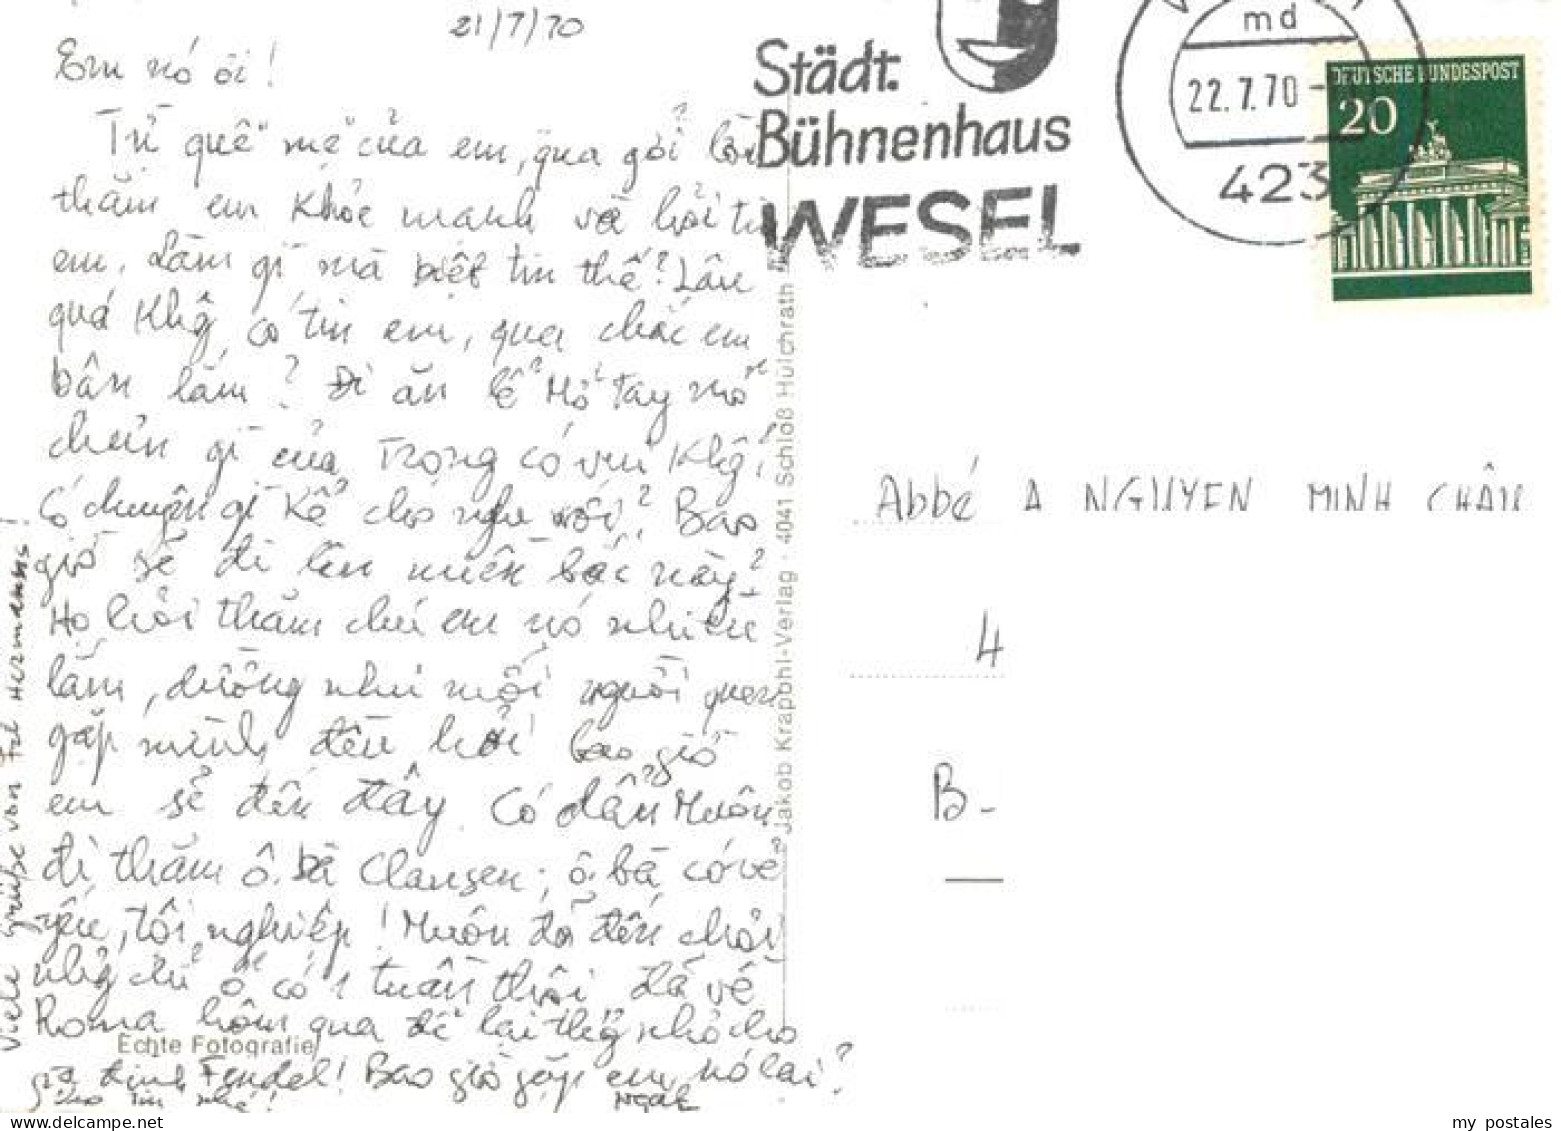 21/7/70
Em nó ơi!
Từ quê "mẹ" của em, qua gởi lời
thăm em khỏe mạnh và hỏi tin
em. Làm gì mà biệt tin thế? Lâu
quá khg có tin em, qua chắc em
bận lắm? Đi ăn lễ Mở Tay mở
của Trọng có vui khg?
Có chuyện gì kể cho nghe với? Bao
giờ sẽ đi lên miền bắc này?
Họ hỏi thăm chú em nó nhiều
lắm, dường như mỗi người quen
gặp mình đều hỏi bao giờ
em sẽ đến đây. Có dẫn Mướn
đi thăm ô. bà Clausen; ô. bà có vẻ
yếu, tội nghiệp! Mướn đã đến chơi
nhg chỉ ở có 1 tuần thôi đã về
Roma hôm qua để lại thg nhớ cho
gia đình Fendel! Bao giờ gặp em nó lại?
cho tin nhé!
Viele Grüße von Hermanns!
Echte Fotografie
Jakob Krapohl-Verlag · 4041 Schloß Hülchrath
Städt.
Bühnenhaus
WESEL
md
22.7.70
423
DEUTSCHE BUNDESPOST
20
Abbé A NGUYEN MINH CHÂU
4
B-
my postales